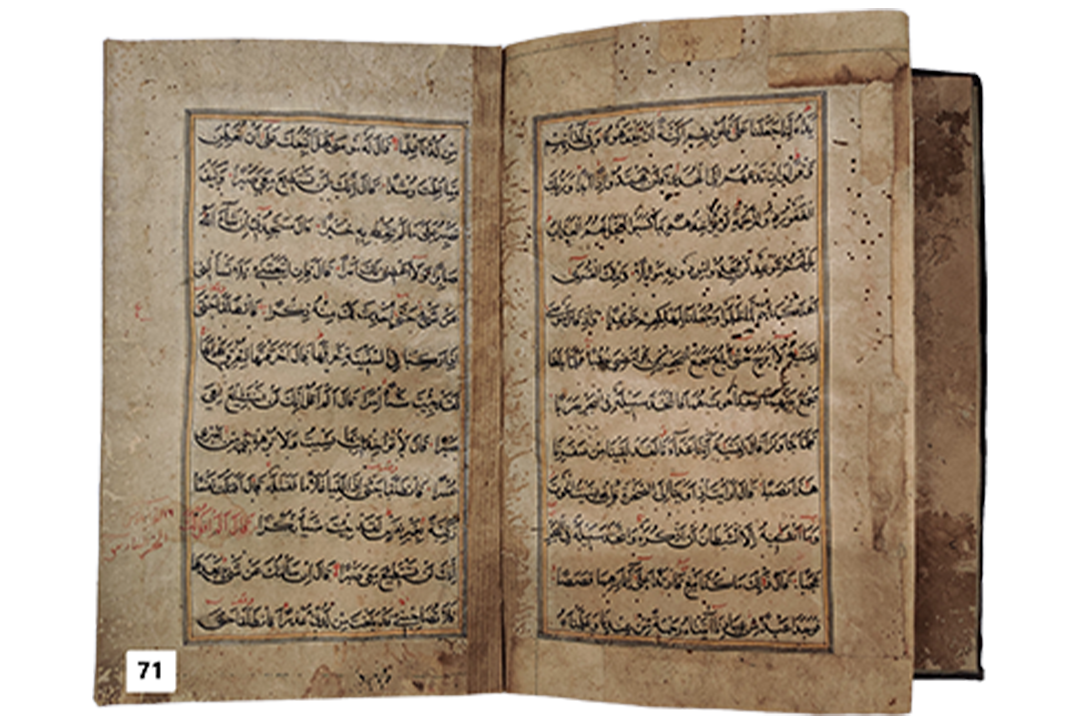 يداه إنا جعلنا على قلوبهم أكنة أن يفقهوه وفي آذانهم
وقرا وإن تدعهم إلى الهدى فلن يهتدوا إذا أبدا وربك
الغفور ذو الرحمة لو يؤاخذهم بما كسبوا لعجل لهم العذاب
بل لهم موعد لن يجدوا من دونه موئلا وتلك القرى
أهلكناهم لما ظلموا وجعلنا لمهلكهم موعدا وإذ قال موسى
لفتاه لا أبرح حتى أبلغ مجمع البحرين أو أمضي حقبا فلما بلغا
مجمع بينهما نسيا حوتهما فاتخذ سبيله في البحر سربا
فلما جاوزا قال لفتاه آتنا غداءنا لقد لقينا من سفرنا
هذا نصبا قال أرأيت إذ أوينا إلى الصخرة فإني نسيت الحوت
وما أنسانيه إلا الشيطان أن أذكره واتخذ سبيله في البحر
عجبا قال ذلك ما كنا نبغ فارتدا على آثارهما قصصا
فوجدا عبدا من عبادنا آتيناه رحمة من عندنا وعلمناه
من لدنا علما قال له موسى هل أتبعك على أن تعلمن
مما علمت رشدا قال إنك لن تستطيع معي صبرا وكيف
تصبر على ما لم تحط به خبرا قال ستجدني إن شاء الله
صابرا ولا أعصي لك أمرا قال فإن اتبعتني فلا تسألني
عن شيء حتى أحدث لك منه ذكرا فانطلقا حتى
إذا ركبا في السفينة خرقها قال أخرقتها لتغرق أهلها
لقد جئت شيئا إمرا قال ألم أقل إنك لن تستطيع معي
صبرا قال لا تؤاخذني بما نسيت ولا ترهقني من أمري
عسرا فانطلقا حتى إذا لقيا غلاما فقتله قال أقتلت نفسا
زكية بغير نفس لقد جئت شيئا نكرا قال ألم أقل لك
إنك لن تستطيع معي صبرا قال إن سألتك عن شيء بعدها
فلا تصاحبني قد بلغت من لدني عذرا فانطلقا حتى
71